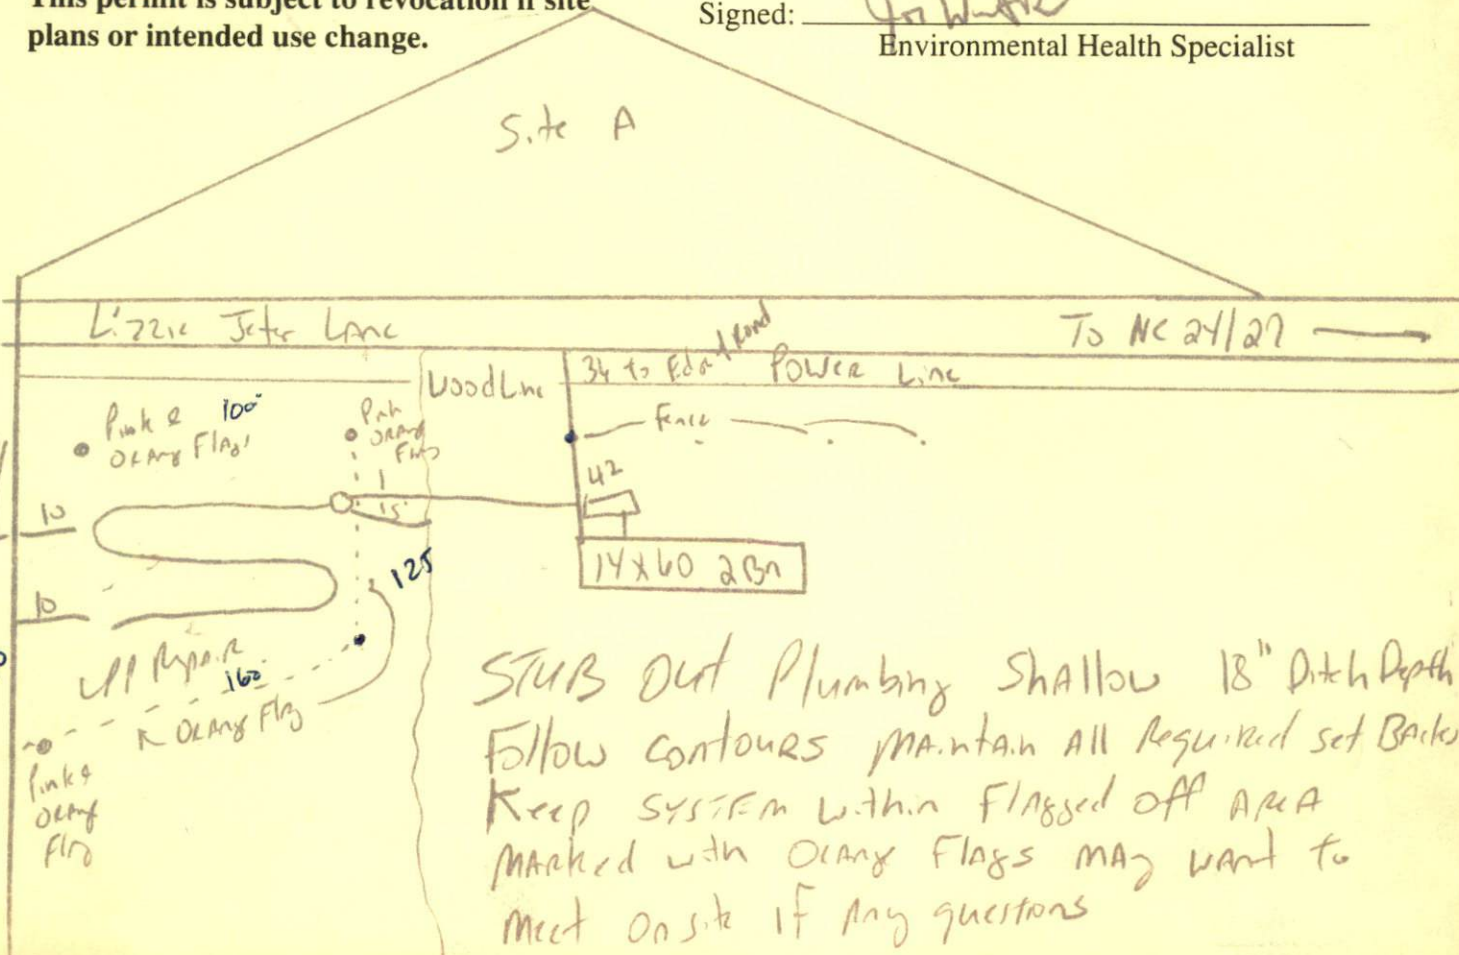 This permit is subject to revocation if site
plans or intended use change.
Signed:
Environmental Health Specialist
Site A
Lizzie Jeter Lane
To NC 24/27
34 to Edge of Road
Power Line
Wood Line
Pink & 100'
Orange Flags
Pink
Orange
Flags
Fence
42
10
15
14x60 2Br
125
10
Repair
160
Orange Flag
Pink &
Orange
Flag
STUB Out Plumbing Shallow 18" Ditch Depth
Follow contours MAintain All Required set BAcks
Keep SYSTEM within Flagged off AreA
MArked with Orange Flags MAy wAnt to
Meet On site If Any questions